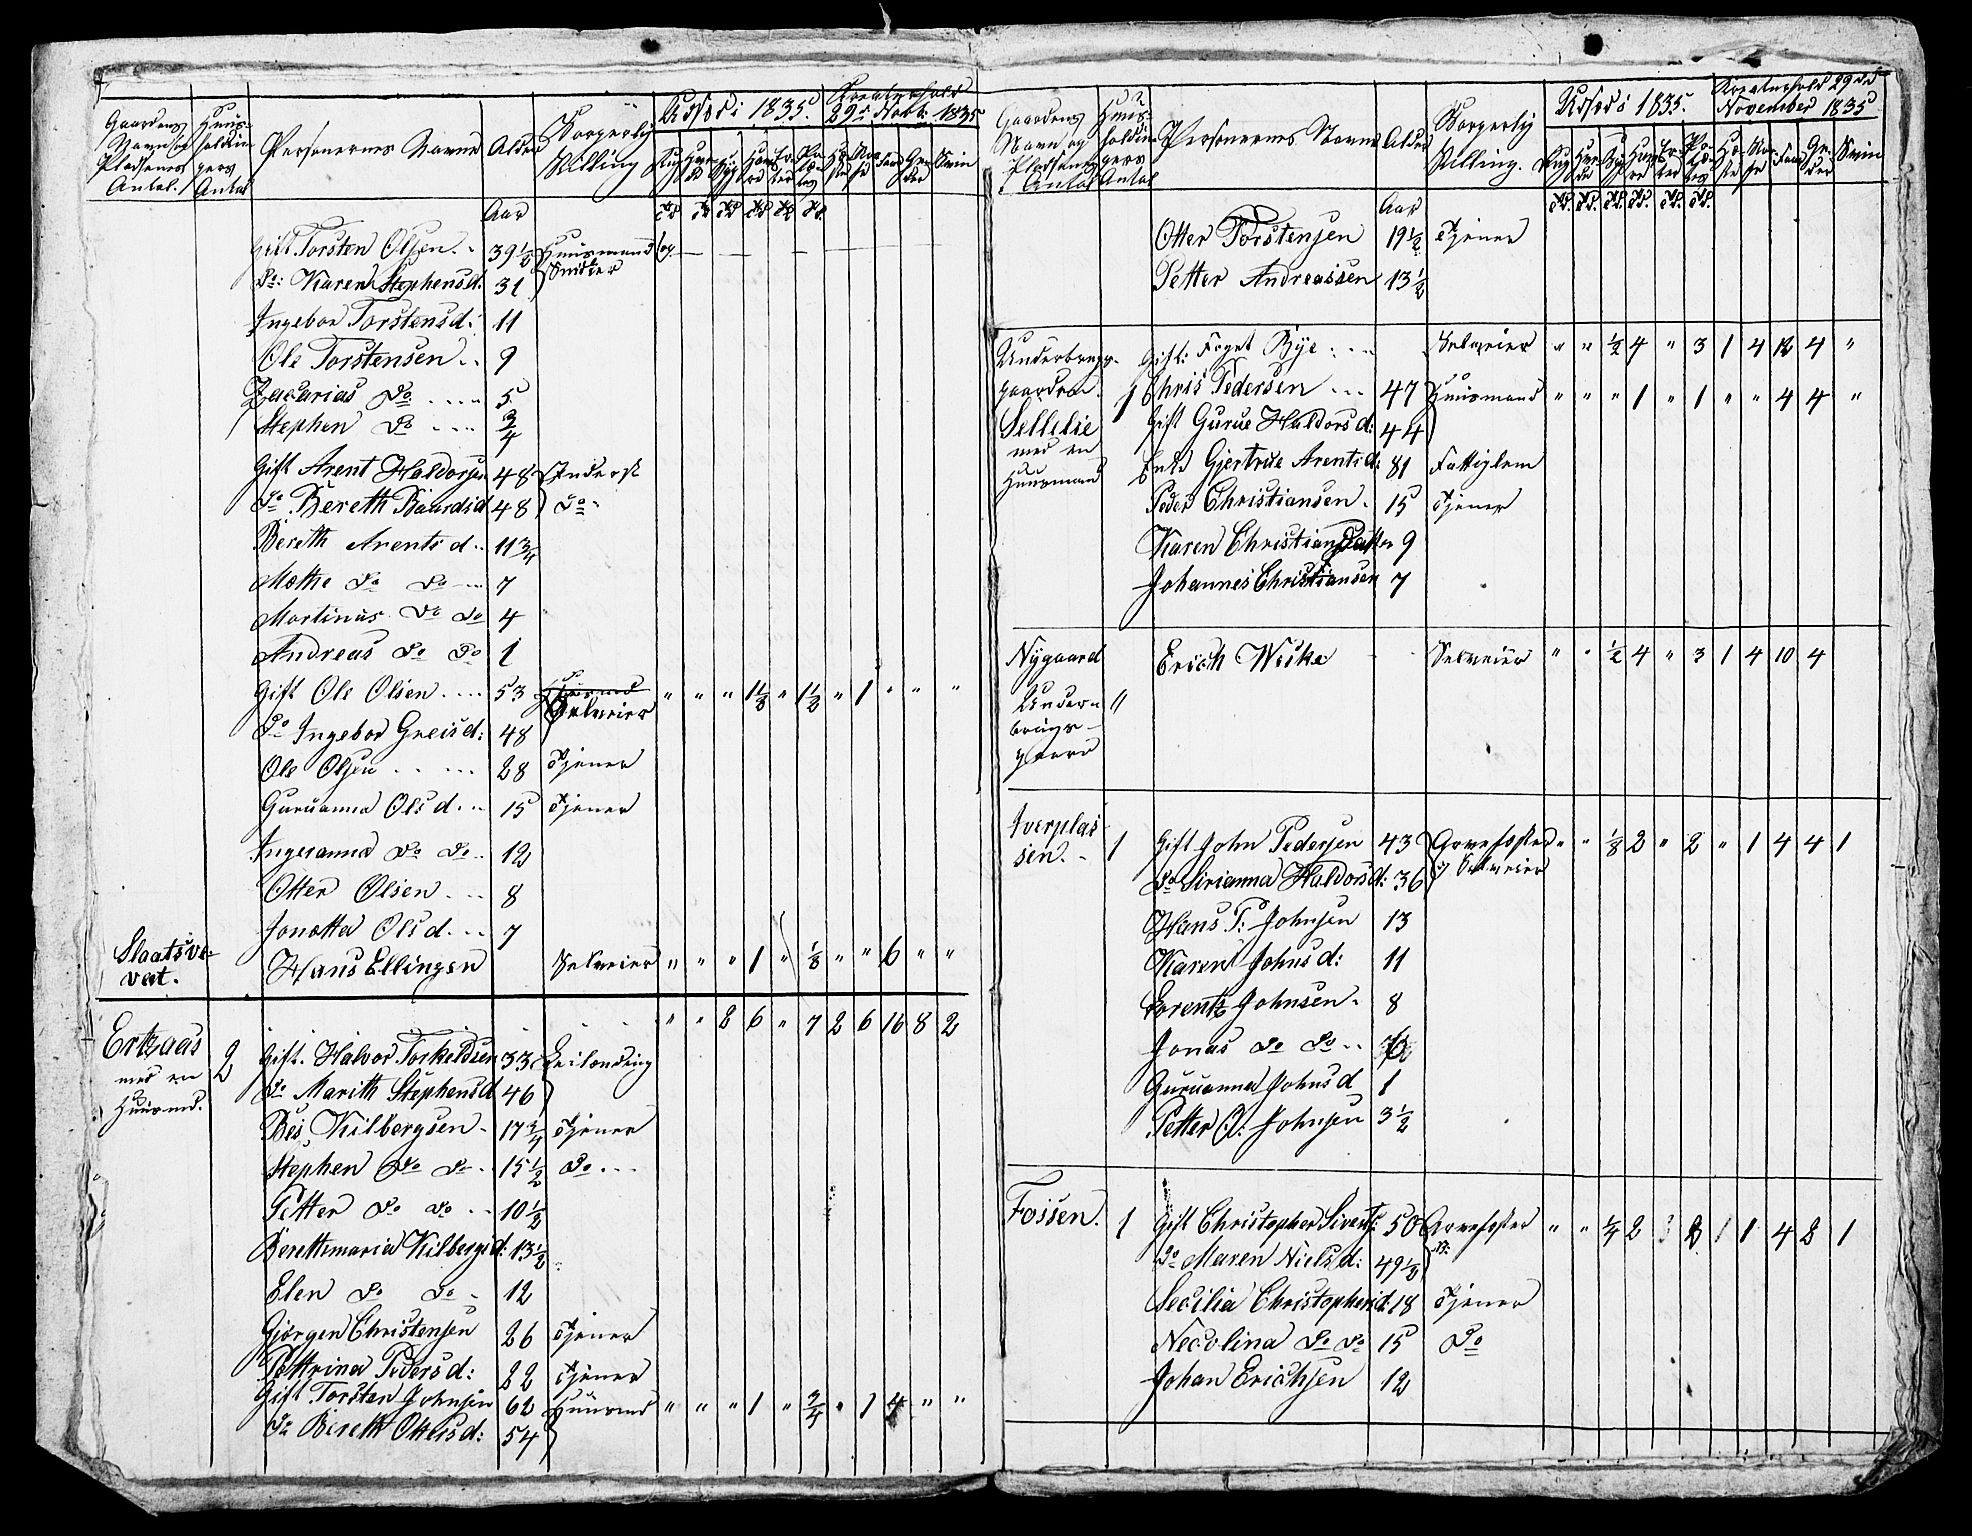 Gaardens Navn og Pladsenes Antal. Huusholdningers Antal Personernes Navne Alder Borgerlig Stilling Udsæd i 1835. Kreaturhold 29de Novb: 1835
Aar
Gift Torsten Olsen 39 1/2 Huusmand og
Do: Karen Stephensd: 31 Smider
Ingebor Torstensd: 11
Ole Torstensen 9
Zacarias Do 5
Stephen Do 3/4
Gift Arent Haldorsen 48 Inderst
Do Bereth Baardsd 48 Do
Bereth Arentsd 11 3/4
Methe Do Do 7
Martinus Do Do 4
Andreas Do Do 1
Gift Ole Olsen 53 " " " 1 1/8 " 1 1/2 " 1 " " "
Selveier
Do Ingebor Greisd: 48
Ole Olsen 28 Tjener
Guruanna Olsd 15 Tjener
Ingeranna Do Do 12
Otter Olsen 8
Jonetta Olsd 7
Slaatsve-
vet. Hans Ellingsen Selveier " " " 1 " 1/8 " " 6 " "
" " 2 6 " 7 2 6 16 8 2
Ertzaas 2 Gift. Halvor Torkeldsen 33 Leilænding
med en Do Marith Stephensd 46
Huusmd. Bes Kilbergsen 17 3/4 Tjener
Stephen Do Do 15 1/2 Do
Petter Do Do 10 1/2
Berethmaria Kilbergsd: 13 1/2
Elen Do Do 12
Gjørgen Christensen 26 Tjener
Pettrina Pedersd: 22 Tjener
Gift Torsten Johnsen 62 Huusmd " " " 1 " 3/4 " 1 4 " "
Do Bereth Ottersd: 54
Gaardens Navn og Pladsenes Antal Huusholdningers Antal Personernes Navne Alder Borgerlig Stilling. Udsæd i 1835. Kreaturhold 29de November 1835
Aar
Otter Torstensen 19 1/2 Tjener
Petter Andreassen 13 1/2
Underbrugs- Gift: Foget Bye Selveier " " 1/2 4 " 3 1 4 12 4 "
gaarden 1 Chris Pedersen 47 Huusmand " " " 1 " 1 " " 4 4 "
Sellelie Gift Gurue Haldorsd: 44
med en Enke Gjertrue Arentsd: 81 Fattiglem
Huusmand Peder Christiansen 15 Tjener
Karen Christiansdatter 9
Johannes Christiansen 7
Nygaard Erich Wiske Selveier " " 1/2 4 " 3 1 4 10 4
Under- "
brugs-
gaard
Iverplas-
sen. 1 Gift John Pedersen 43 Gaardfester " " 1/8 2 " 2 " 1 4 4 1
Do Sirianna Haldorsd: 36 og Selveier
Hans P: Johnsen 13
Karen Johnsd: 11
Lorentz Johnsen 8
Jonas Do Do
Guruanna Johnsd 1
Petter O: Johnsen 3 1/2
Fossen. 1 Gift Christopher Siverts: 50 Gaardfester " " 1/4 2 2 1 1 4 2 1
Do Maren Nielsd: 49 1/2
Secilia Christophersd: 18 Tjener
Necolina Do Do 15 Do
Johan Erichsen 12